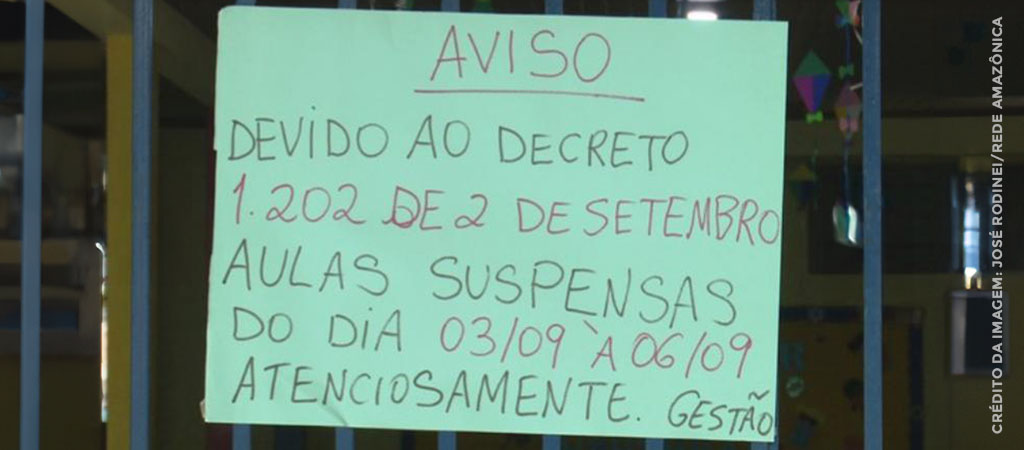 AVISO
DEVIDO AO DECRETO
1.202 DE 2 DE SETEMBRO
AULAS SUSPENSAS
DO DIA 03/09 À 06/09
ATENCIOSAMENTE. GESTÃO
CRÉDITO DA IMAGEM: JOSÉ RODINEI/REDE AMAZÔNICA